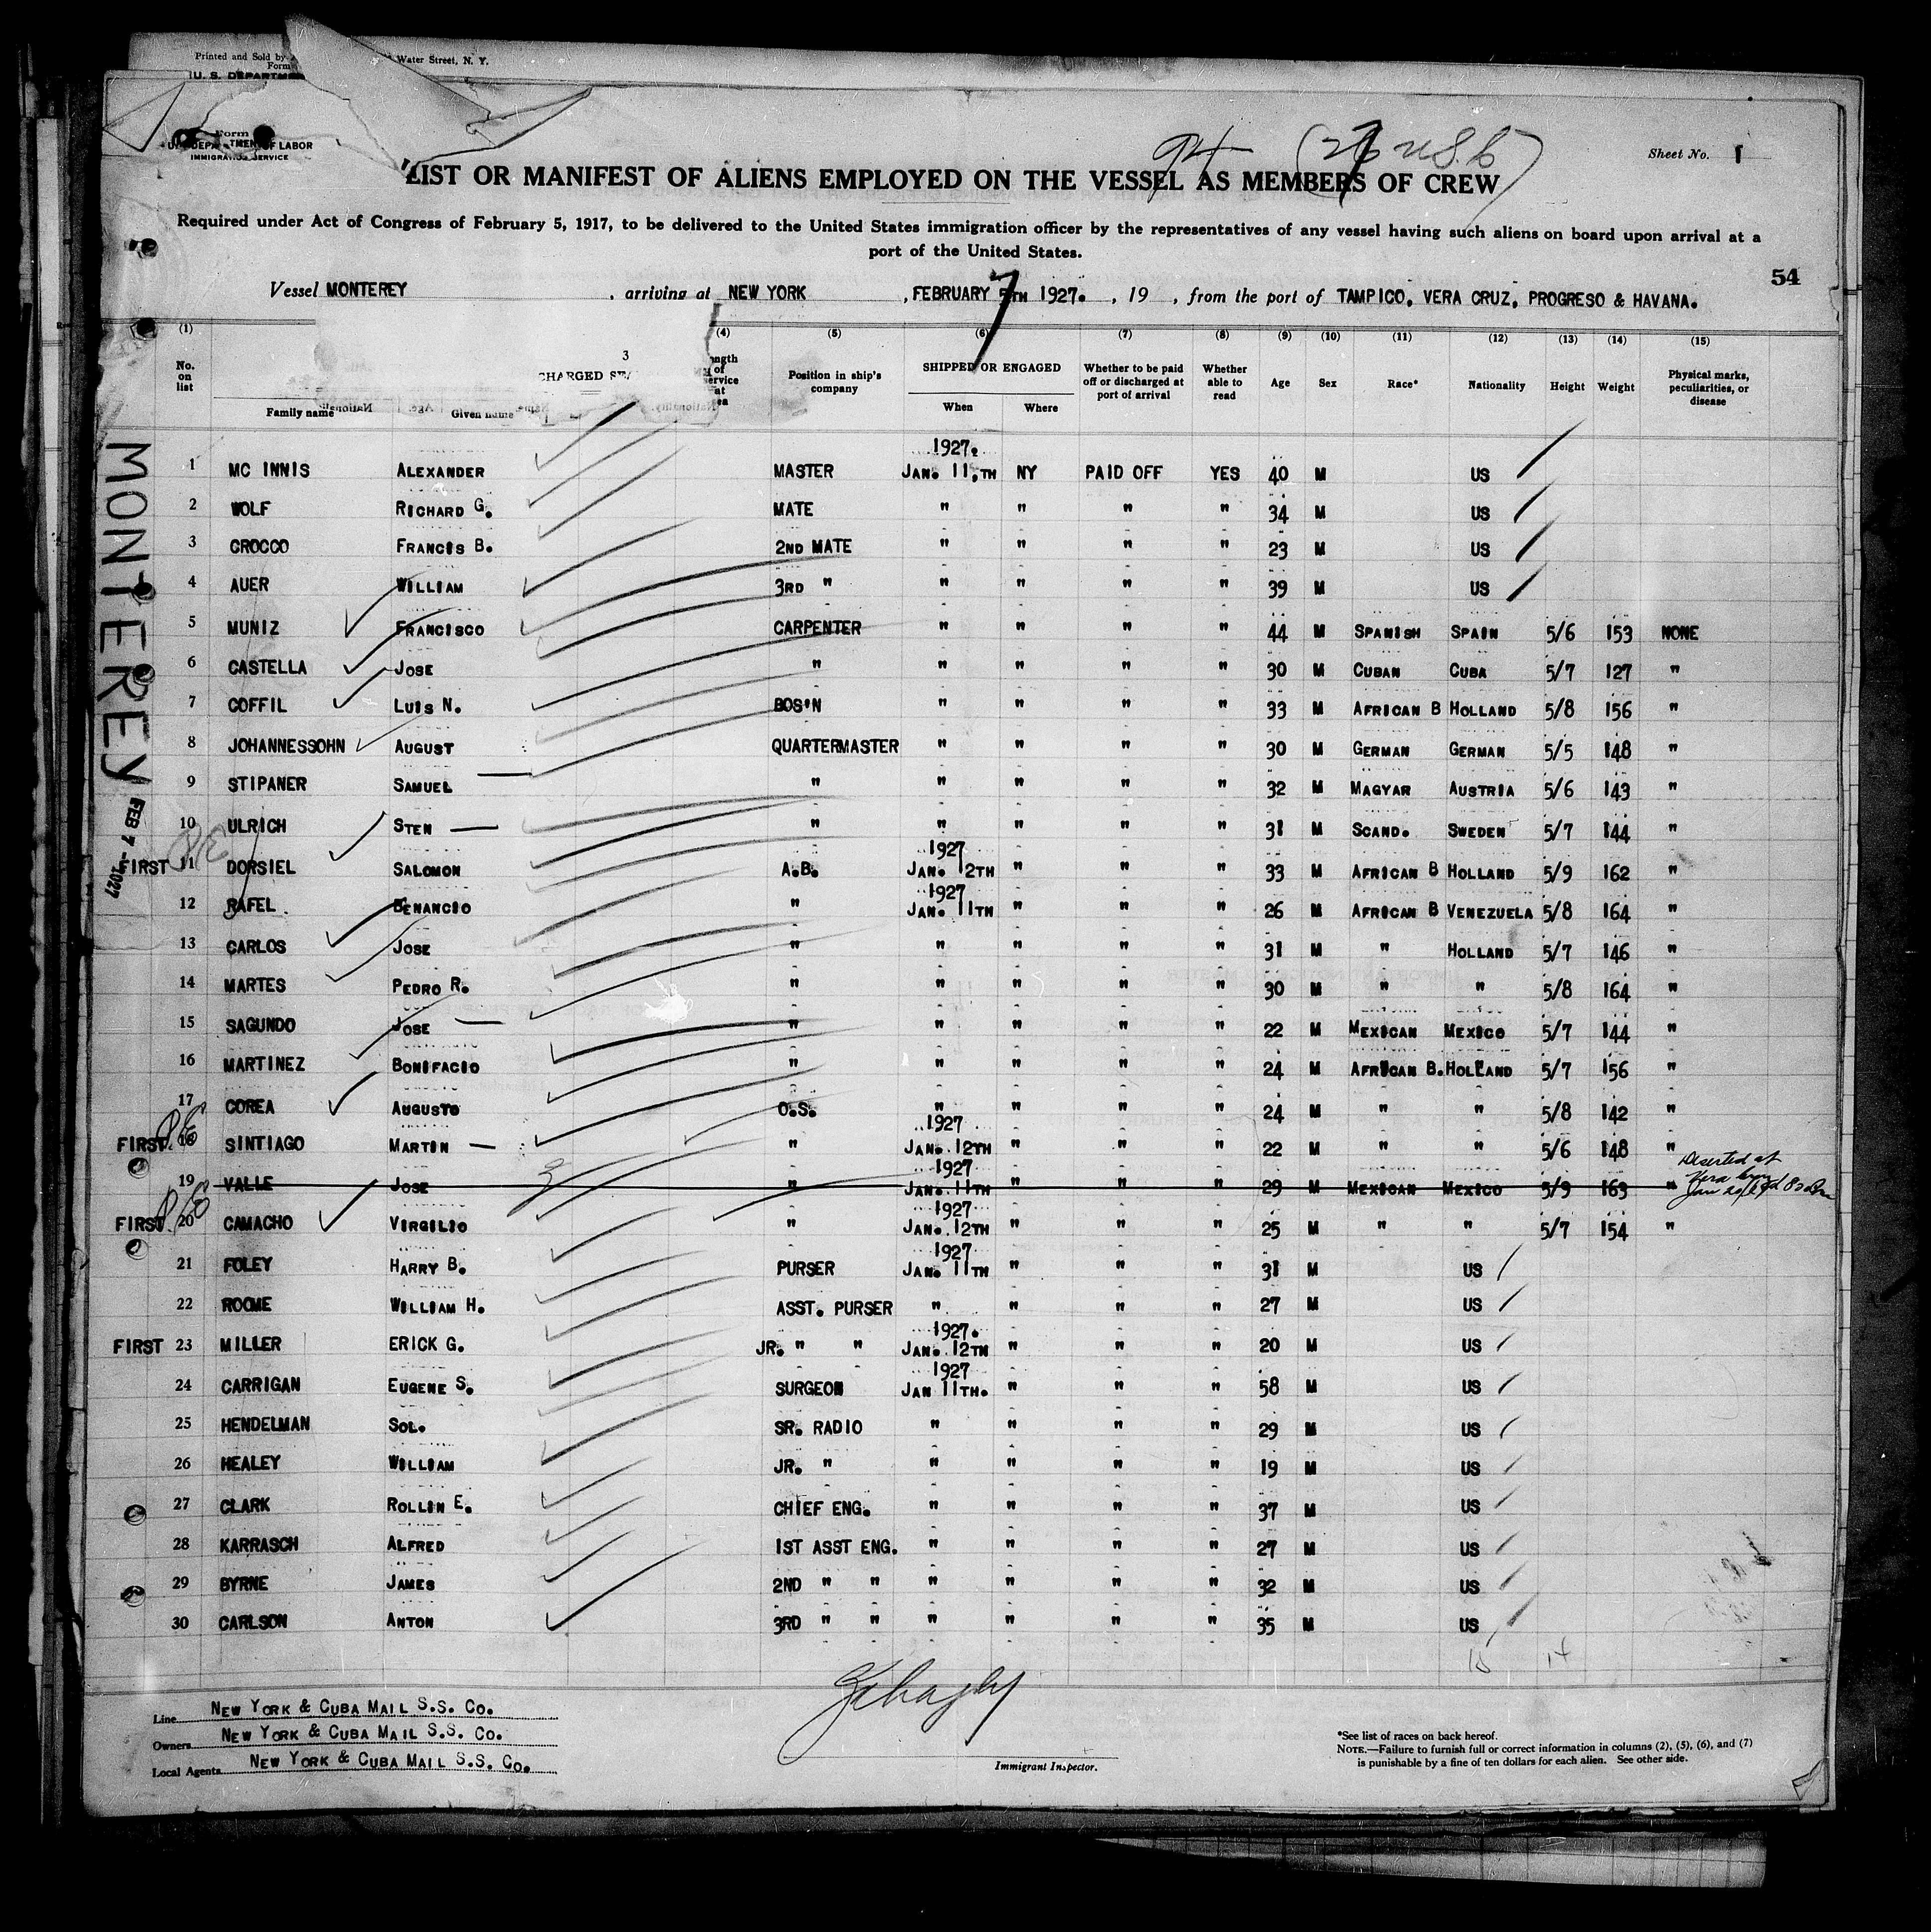 Printed and Sold by Water Street, N. Y.
Form
U. S. DEPARTMEN
Form
U. DEPA TMENT OF LABOR
IMMIGRATION SERVICE
94 (26 USC)
Sheet No. 1
LIST OR MANIFEST OF ALIENS EMPLOYED ON THE VESSEL AS MEMBERS OF CREW
Required under Act of Congress of February 5, 1917, to be delivered to the United States immigration officer by the representatives of any vessel having such aliens on board upon arrival at a
port of the United States.
54
Vessel MONTEREY , arriving at NEW YORK , FEBRUARY 5TH 1927. , 19 , from the port of TAMPICO, VERA CRUZ, PROGRESO & HAVANA.
7
(1) (4) (5) (6) (7) (8) (9) (10) (11) (12) (13) (14) (15)
No. on list Family name Given name 3 CHARGED SEA ngth of ervice at ea Position in ship's company SHIPPED OR ENGAGED When Where Whether to be paid off or discharged at port of arrival Whether able to read Age Sex Race* Nationality Height Weight Physical marks, peculiarities, or disease
MONTEREY
FEB 7 - 1927
1927.
1 MC INNIS ALEXANDER MASTER JAN. 11,TH NY PAID OFF YES 40 M US
2 WOLF RICHARD G. MATE " " " " 34 M US
3 CROCCO FRANCIS B. 2ND MATE " " " " 23 M US
4 AUER WILLIAM 3RD " " " " " 39 M US
5 MUNIZ FRANCISCO CARPENTER " " " " 44 M SPANISH SPAIN 5/6 153 NONE
6 CASTELLA JOSE " " " " " 30 M CUBAN CUBA 5/7 127 "
7 COFFIL LUIS N. BOS'N " " " " 33 M AFRICAN B HOLLAND 5/8 156 "
8 JOHANNESSOHN AUGUST QUARTERMASTER " " " " 30 M GERMAN GERMAN 5/5 148 "
9 STIPANER SAMUEL " " " " " 32 M MAGYAR AUSTRIA 5/6 143 "
10 ULRICH STEN " " " " " 31 M SCAND. SWEDEN 5/7 144 "
1927
FIRST 11 DORSIEL SALOMON A.B. JAN. 12TH " " " 33 M AFRICAN B HOLLAND 5/9 162 "
1927
12 RAFEL BENANCIO " JAN. 11TH " " " 26 M AFRICAN B VENEZUELA 5/8 164 "
13 CARLOS JOSE " " " " " 31 M " HOLLAND 5/7 146 "
14 MARTES PEDRO R. " " " " " 30 M " " 5/8 164 "
15 SAGUNDO JOSE " " " " " 22 M MEXICAN MEXICO 5/7 144 "
16 MARTINEZ BONIFACIO " " " " " 24 M AFRICAN B. HOLLAND 5/7 156 "
17 COREA AUGUSTO O.S. " " " " 24 M " " 5/8 142 "
1927
FIRST 18 SINTIAGO MARTIN " JAN. 12TH " " " 22 M " " 5/6 148 "
1927
19 VALLE JOSE " JAN. 11TH " " " 29 M MEXICAN MEXICO 5/9 163 " Deserted at Vera Cruz
1927
FIRST 20 CAMACHO VIRGILIO " JAN. 12TH " " " 25 M " " 5/7 154 "
1927
21 FOLEY HARRY B. PURSER JAN. 11TH " " " 31 M US
22 ROOME WILLIAM H. ASST. PURSER " " " " 27 M US
1927.
FIRST 23 MILLER ERICK G. JR. " " JAN. 12TH " " " 20 M US
1927
24 CARRIGAN EUGENE S. SURGEON JAN 11TH. " " " 58 M US
25 HENDELMAN SOL. SR. RADIO " " " " 29 M US
26 HEALEY WILLIAM JR. " " " " " 19 M US
27 CLARK ROLLIN E. CHIEF ENG. " " " " 37 M US
28 KARRASCH ALFRED 1ST ASST ENG. " " " " 27 M US
29 BYRNE JAMES 2ND " " " " " " 32 M US
30 CARLSON ANTON 3RD " " " " " " 35 M US
Line NEW YORK & CUBA MAIL S.S. CO.
Owners NEW YORK & CUBA MAIL S.S. CO.
Local Agents NEW YORK & CUBA MAIL S.S. CO.
Immigrant Inspector.
*See list of races on back hereof.
NOTE.—Failure to furnish full or correct information in columns (2), (5), (6), and (7)
is punishable by a fine of ten dollars for each alien. See other side.